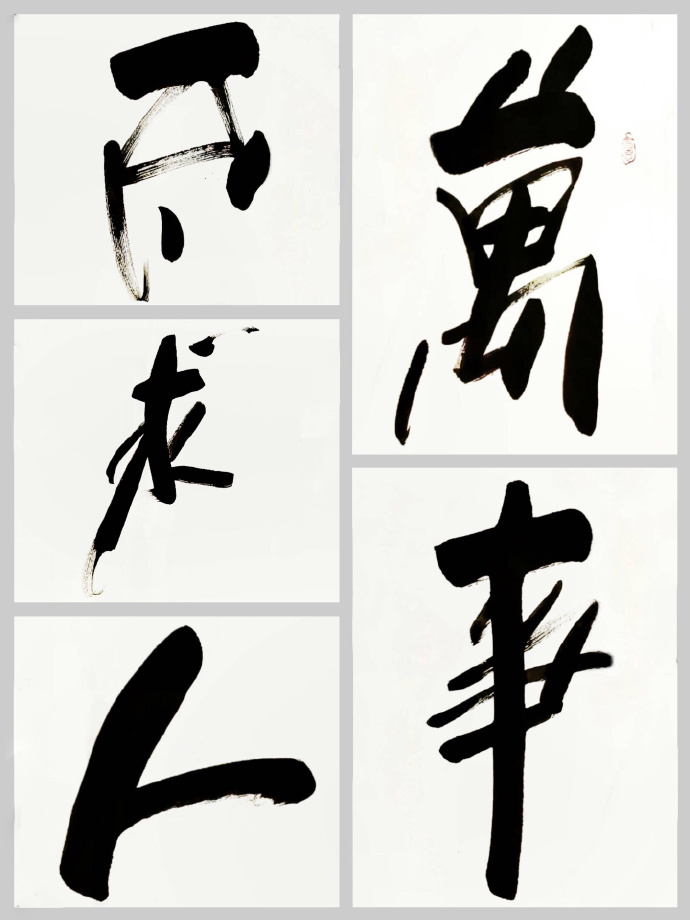 萬事
不求人